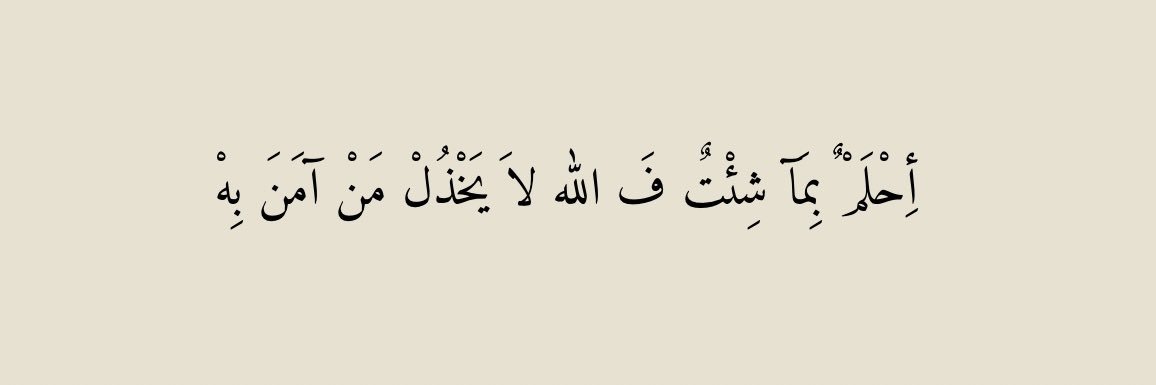 أِحْلَمْ ٌ بِمَآ شِئْتٌ فَ الله لاَ يَخْذُلْ مَنْ آمَنَ بِهْ